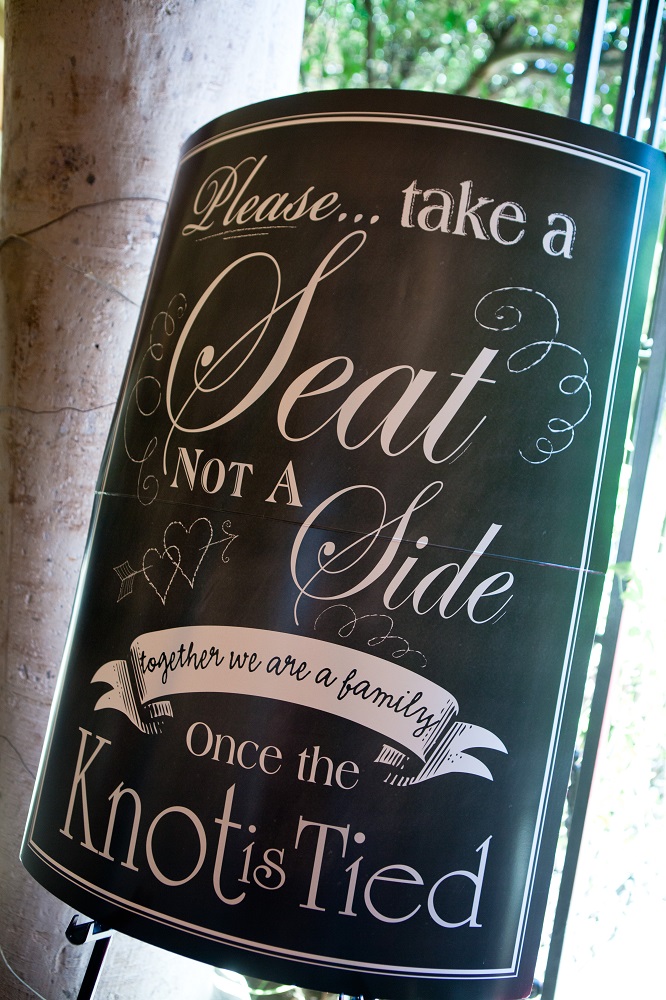 Please... take a
Seat
NOT A
Side
together we are a family
Once the
Knot is Tied